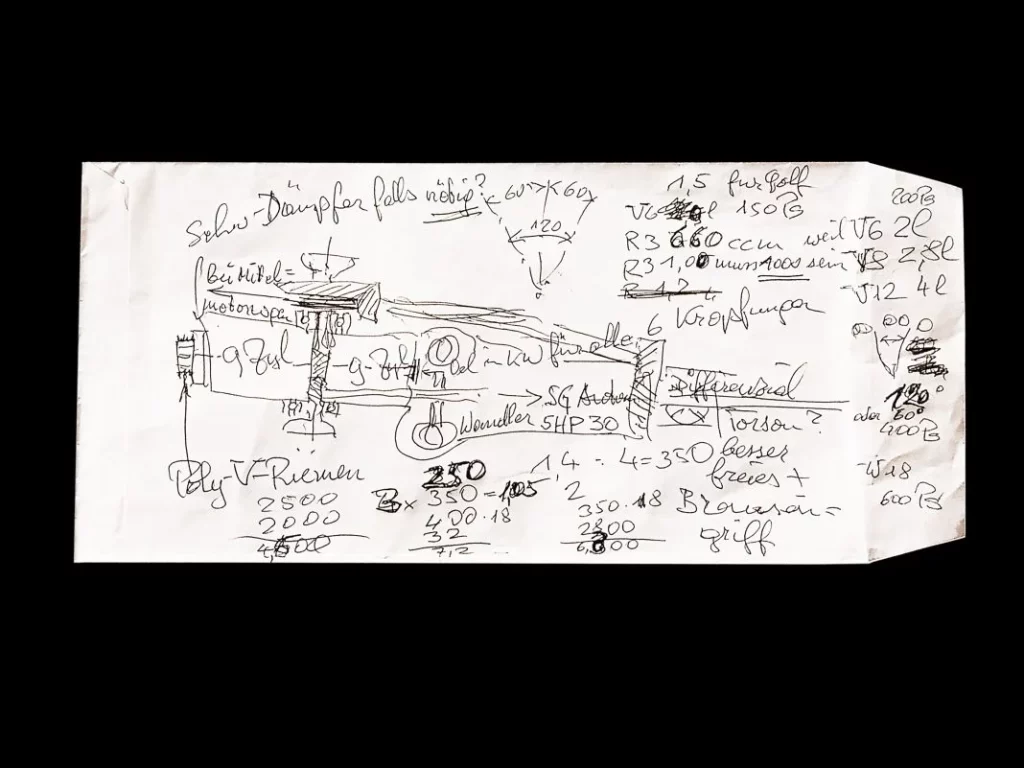 Schw-Dämpfer falls nötig?
60° 60°
120
1,5 für Golf
V6 l 150 PS
R3 660 ccm weil V6 2l
R3 1,00 muss 1000 sein V8 2,8l
R 1,2
V12 4l
200 PS
6 Kröpfungen
Bei Mittel=
motorwagen
9 Zyl
9 Zyl
Öl in KW für alle
Differenzial
5 G
Wandler 5HP 30
Torson?
120°
oder 60°
400 PS
W18
600 PS
Poly-V-Riemen
250
14 : 4 = 350 besser
freies +
Brownson=
griff
2500
2000
4,500
B x 350 = 1,05
400 . 18
32
7,2
2
350 . 18
2800
6,300